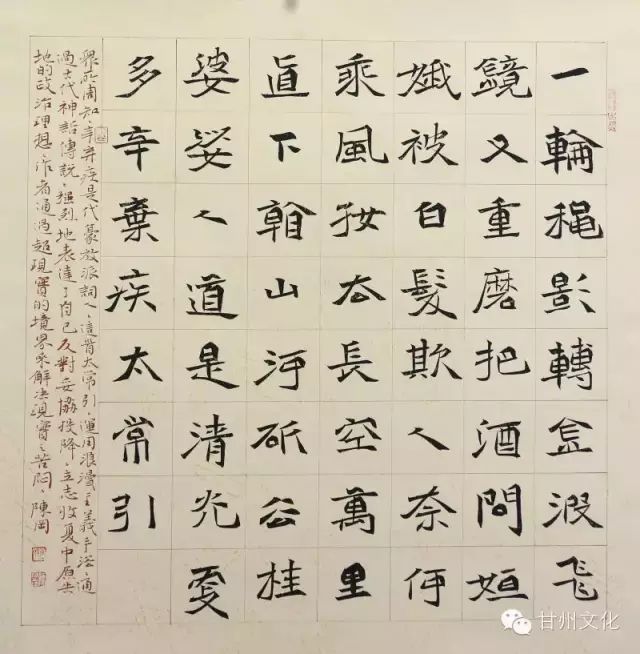 一輪穐影轉金波飛
鏡又重磨把酒問姮
娥被白髮欺人奈何
乘風好去長空萬里
直下看山河斫公桂
婆娑人道是清光更
多辛棄疾太常引
眾所周知辛弃疾是代豪放派詞人，這首太常引，運用浪漫主義手法，通
過古代神話傳說，強烈地表達了自己反對妥協投降，立志收复中原失
地的政治理想，作者通過超現實的境界來解決現實之苦悶，陳
甘州文化